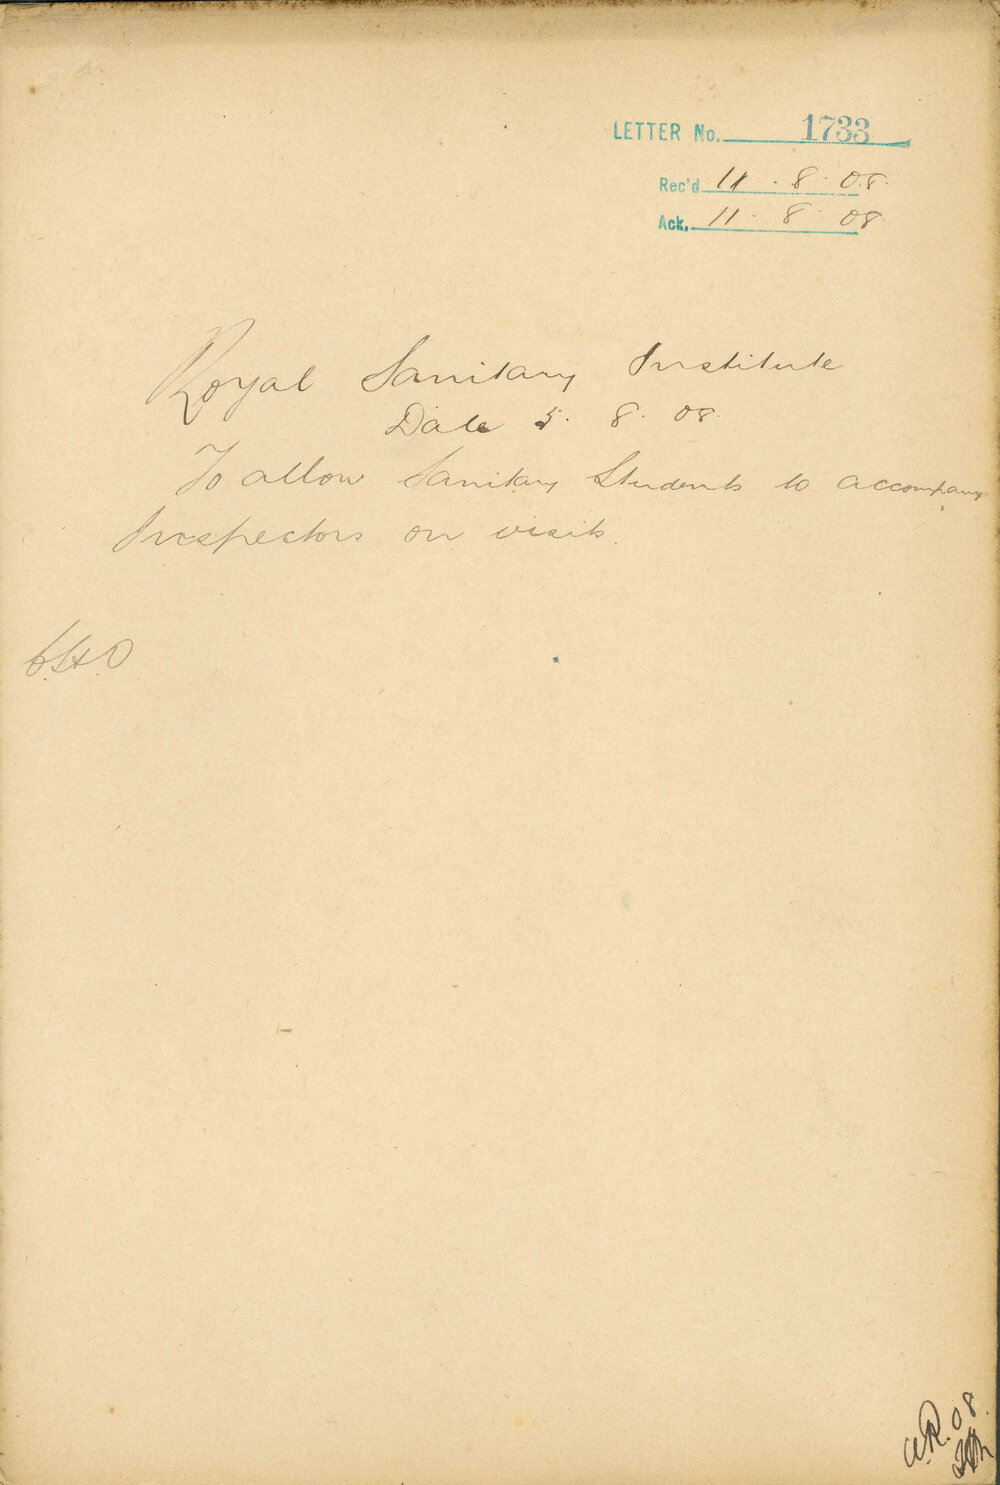 LETTER No. 1733
Rec'd 11.8.08.
Ack. 11.8.08
Royal Sanitary Institute
Date 5.8.08.
To allow Sanitary Students to accompany
Inspectors on visits.